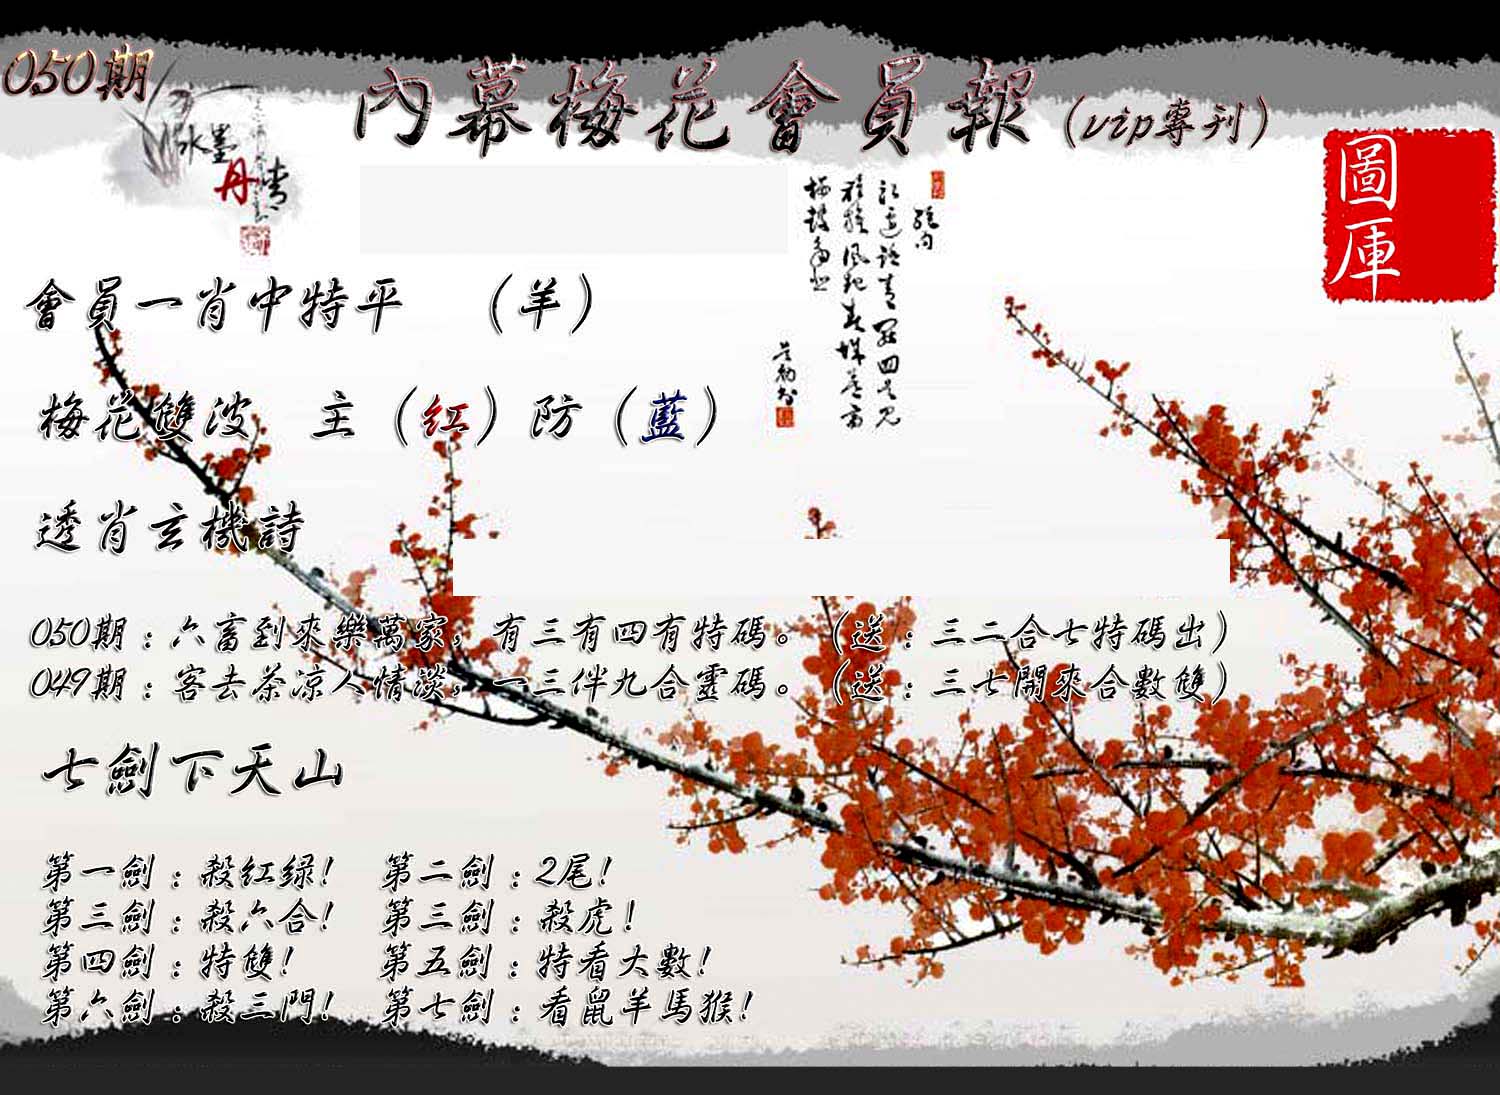 050期
內幕梅花會員報（vip專刊）
水墨
丹情
圖庫
會員一肖中特平　（羊）
梅花雙波　主（紅）防（藍）
透肖玄機詩
050期：六畜到來樂萬家，有三有四有特碼。（送：三二合七特碼出）
049期：客去茶涼人情淡，一三伴九合靈碼。（送：三七開來合數雙）
七劍下天山
第一劍：殺紅绿！　第二劍：2尾！
第三劍：殺六合！　第三劍：殺虎！
第四劍：特雙！　第五劍：特看大數！
第六劍：殺三門！　第七劍：看鼠羊馬猴！